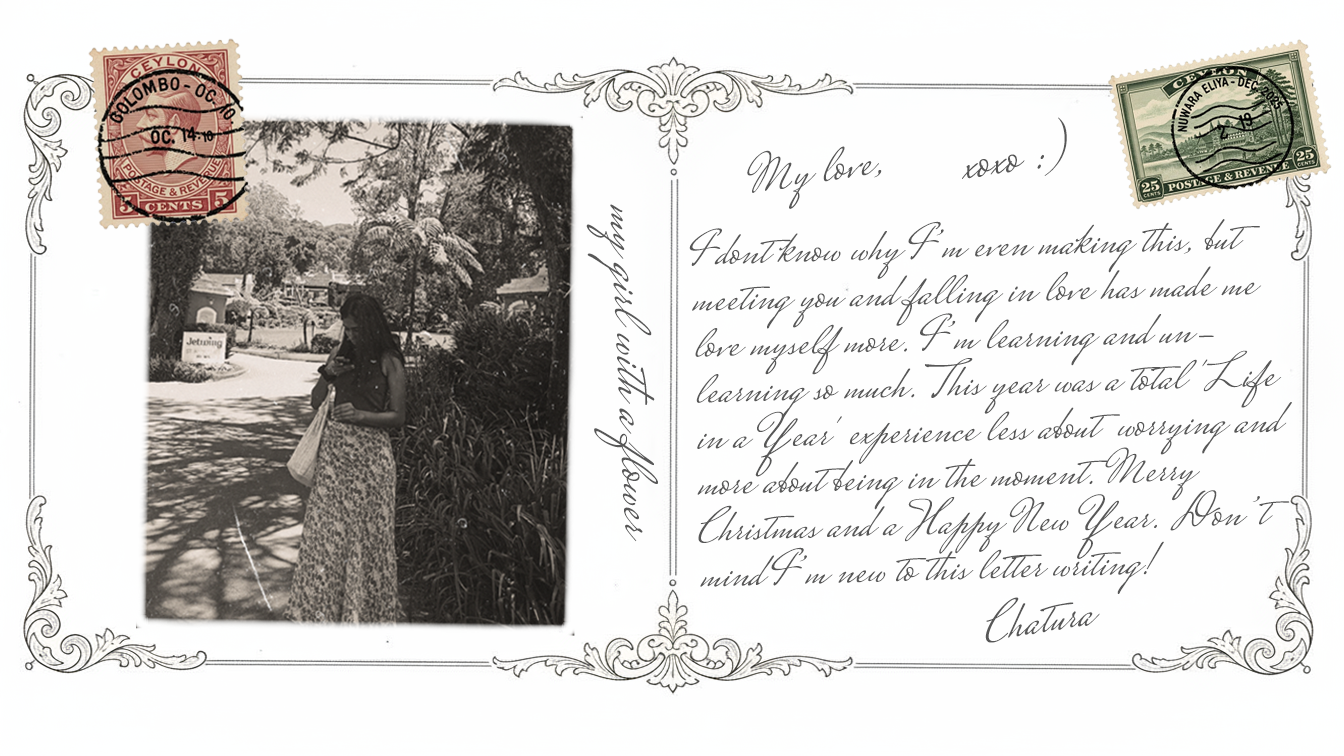 CEYLON
COLOMBO - OC. 10
OC. 14.10
POSTAGE & REVENUE
5 CENTS 5
Jetwing
my girl with a flower
CEYLON
NUWARA ELIYA - DEC 2025
25 CENTS
POSTAGE & REVENUE
25 CENTS
My love, xoxo :)
I dont know why I'm even making this, but
meeting you and falling in love has made me
love myself more. I'm learning and un-
learning so much. This year was a total 'Life
in a Year' experience less about worrying and
more about being in the moment. Merry
Christmas and a Happy New Year. Don't
mind I'm new to this letter writing!
Chatura